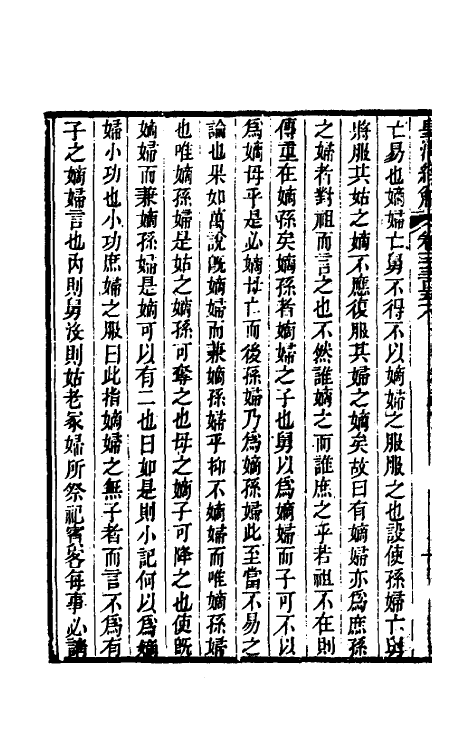 亡易也嫡婦亡舅不得不以嫡婦之服服之也設使孫婦亡舅
將服其姑之嫡不應復服其婦之嫡矣故曰有嫡婦亦為庶孫
之婦者對祖而言之也不然誰嫡之而誰庶之乎若祖不在則
傳重在嫡孫矣嫡孫者嫡婦之子也舅以為嫡婦而子可不以
為嫡母乎是必嫡母亡而後孫婦乃為嫡孫婦此至當不易之
論也果如萬說既嫡婦而兼嫡孫婦乎抑不嫡婦而唯嫡孫婦
也唯嫡孫婦是姑之嫡孫可奪之也母之嫡子可降之也使既
嫡婦而兼嫡孫婦是嫡可以有二也曰如是則小記何以為嫡
婦小功也小功庶婦之服曰此指嫡婦之無子者而言不為有
子之嫡婦言也丙則舅沒則姑老冢婦所祭祀賓客每事必請